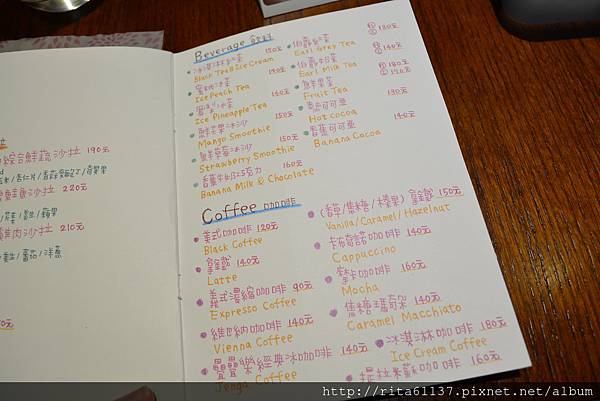 綜合鮮蔬沙拉 190元
沙拉 220元
雞肉沙拉 210元
Beverage 飲料
冰淇淋紅茶 150元
Black Tea & Ice Cream
蜜桃冰茶 140元
Ice Peach Tea
Ice Pineapple Tea 140元
鮮芒果冰沙 150元
Mango Smoothie
鮮草莓冰沙 150元
Strawberry Smoothie
香蕉牛奶巧克力 160元
Banana Milk & Chocolate
伯爵紅茶 130元
Earl Grey Tea 140元
伯爵奶茶
Earl Milk Tea 150元
鮮果茶
Fruit Tea
熱可可亞 130元
Hot cocoa
香蕉可可亞 140元
Banana Cocoa
Coffee 咖啡
美式咖啡 120元
Black Coffee
拿鐵 140元
Latte
義式濃縮咖啡 90元
Expresso Coffee
維也納咖啡 140元
Vienna Coffee
疊疊樂經典冰咖啡 140元
Jenga Coffee
(香草/焦糖/榛果) 拿鐵 150元
Vanilla/Caramel/Hazelnut
卡布奇諾咖啡 140元
Cappuccino
摩卡咖啡 160元
Mocha
焦糖瑪奇朵 140元
Caramel Macchiato
冰淇淋咖啡 180元
Ice Cream Coffee
提拉米蘇咖啡 160元
http://rita61137.pixnet.net/album